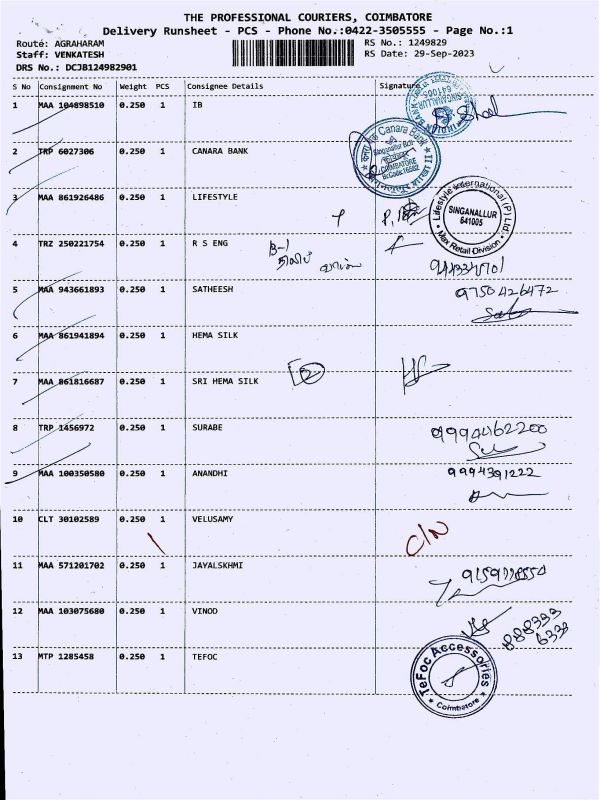 THE PROFESSIONAL COURIERS, COIMBATORE
Delivery Runsheet - PCS - Phone No.:0422-3505555 - Page No.:1
Route: AGRAHARAM RS No.: 1249829
Staff: VENKATESH RS Date: 29-Sep-2023
DRS No.: DCJB124982901
S No Consignment No Weight PCS Consignee Details Signature
1 MAA 104898510 0.250 1 IB
INDIAN BANK SINGANALLUR 641005
2 TRP 6027306 0.250 1 CANARA BANK
Canara Bank COIMBATORE
3 MAA 861926486 0.250 1 LIFESTYLE
Lifestyle International (P) Ltd. SINGANALLUR 641005 Max Retail Division
4 TRZ 250221754 0.250 1 R S ENG B-1
5 MAA 943661893 0.250 1 SATHEESH 9750426472
6 MAA 861941894 0.250 1 HEMA SILK
7 MAA 861816687 0.250 1 SRI HEMA SILK 2
8 TRP 1456972 0.250 1 SURABE 9994462200
9 MAA 100350580 0.250 1 ANANDHI 9994391222
10 CLT 30102589 0.250 1 VELUSAMY C/N
11 MAA 571201702 0.250 1 JAYALSKHMI
12 MAA 103075680 0.250 1 VINOD 888333
6333
13 MTP 1285458 0.250 1 TEFOC
TeFoc Accessories Coimbatore